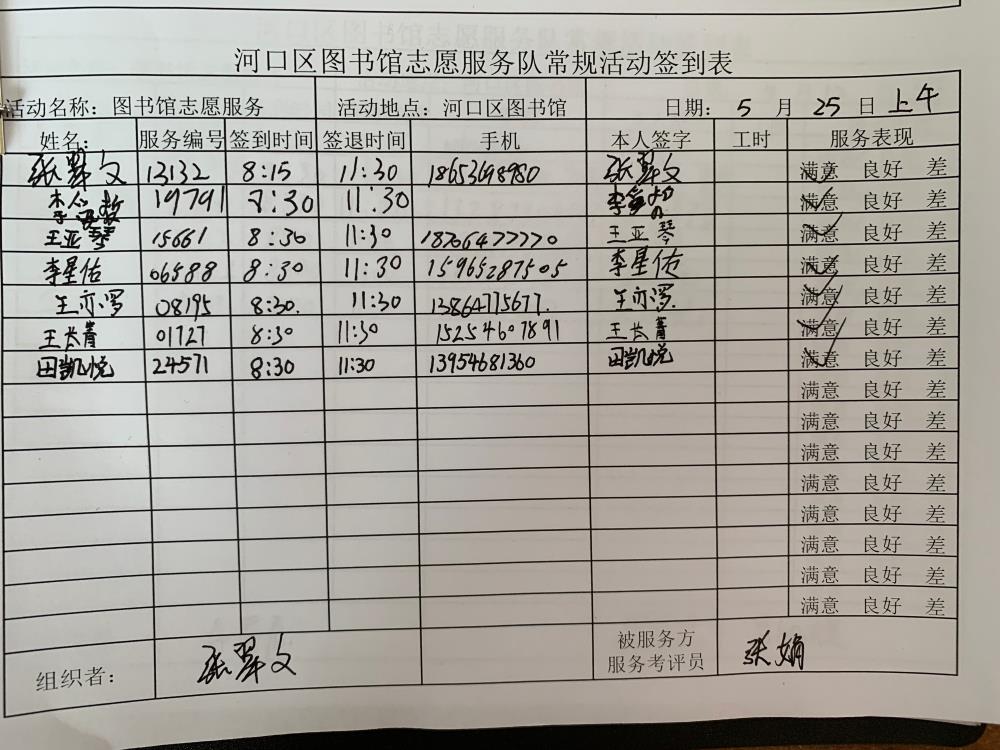 河口区图书馆志愿服务队常规活动签到表
活动名称：图书馆志愿服务 活动地点：河口区图书馆 日期： 5 月 25 日 上午
姓名： 服务编号 签到时间 签退时间 手机 本人签字 工时 服务表现
张翠文 13132 8:15 11:30 张翠文 满意 良好 差
李 19791 8:30 11:30 李 满意 良好 差
王亚琴 15661 8:30 11:30 18206477770 王亚琴 满意 良好 差
李星佑 06588 8:30 11:30 15965287505 李星佑 满意 良好 差
王亦 08195 8:30. 11:30 13864775677. 王亦 满意 良好 差
王长菁 01727 8:30 11:30 15254607891 王长菁 满意 良好 差
田凯悦 24571 8:30 11:30 13954681360 田凯悦 满意 良好 差
满意 良好 差
满意 良好 差
满意 良好 差
满意 良好 差
满意 良好 差
满意 良好 差
满意 良好 差
满意 良好 差
组织者： 张翠文 被服务方 张娟
服务考评员